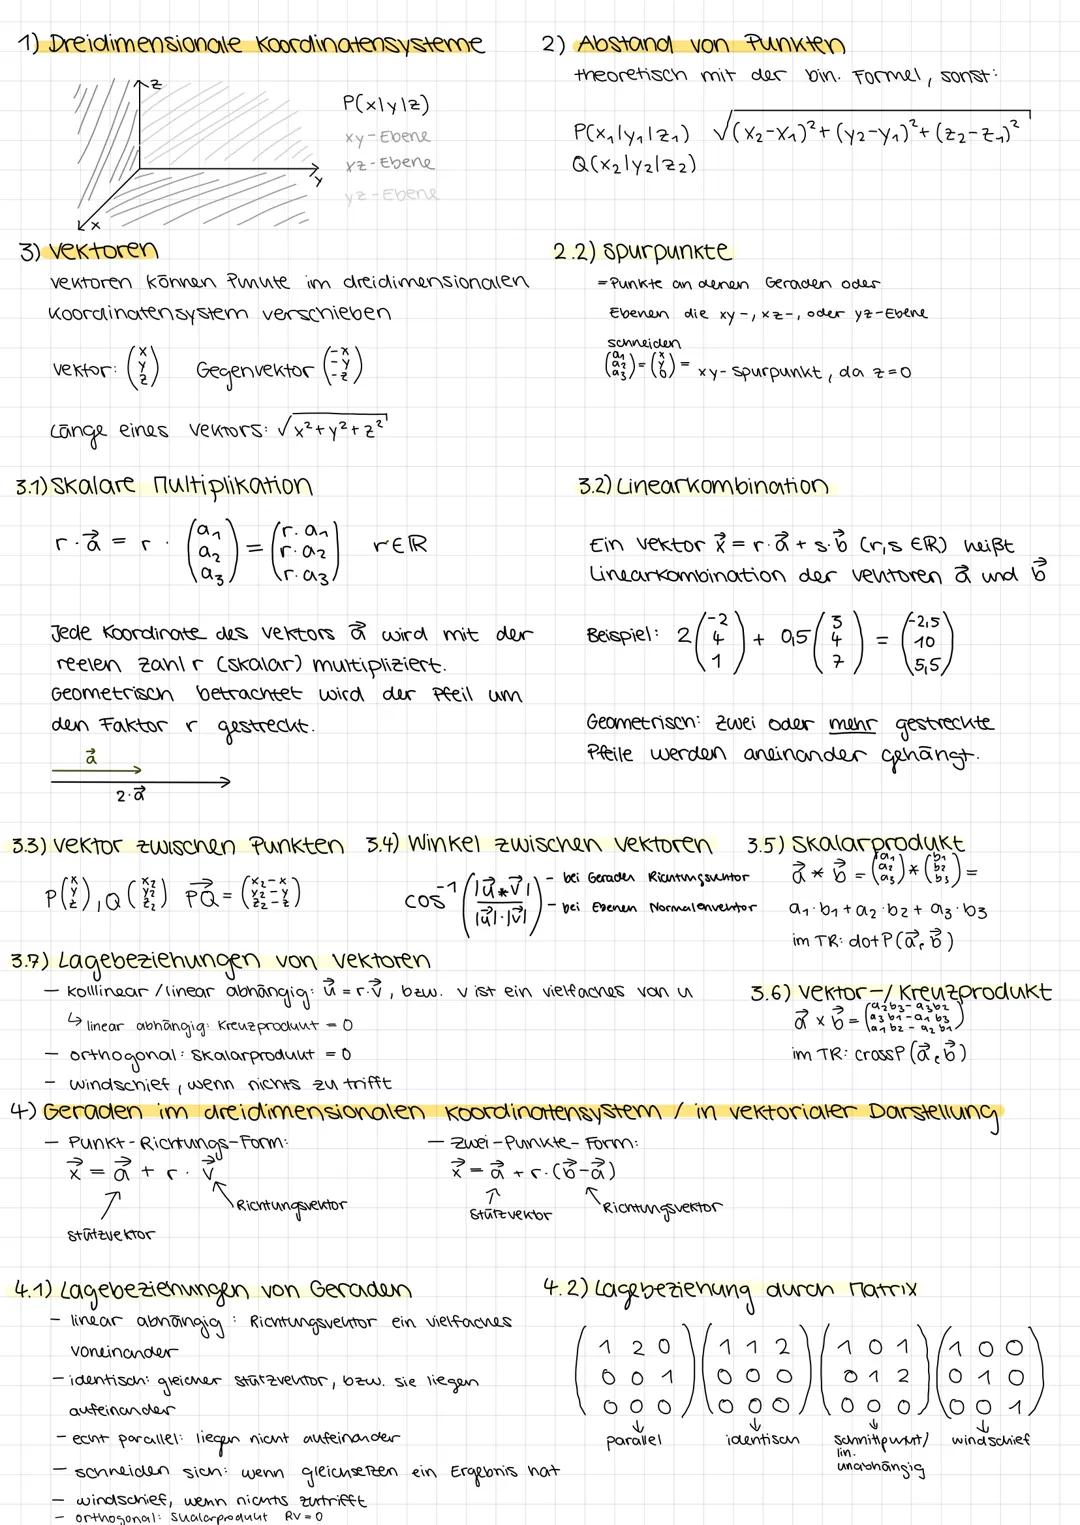 1) Dreidimensionale Koordinatensysteme
z
y
x
P(x|y|z)
xy-Ebene
xz-Ebene
yz-Ebene
2) Abstand von Punkten
theoretisch mit der bin. Formel, sonst:
P(x₁|y₁|z₁) √(x₂-x₁)²+(y₂-y₁)²+(z₂-z₁)²
Q(x₂|y₂|z₂)
3) Vektoren
Vektoren können Punkte im dreidimensionalen
Koordinatensystem verschieben
Vektor: (x y z) Gegenvektor (-x -y -z)
Länge eines Vektors: √x²+y²+z²
2.2) Spurpunkte
= Punkte an denen Geraden oder
Ebenen die xy-, xz-, oder yz-Ebene
schneiden
(a₁ a₂ a₃) = (x y 0) = xy-Spurpunkt, da z=0
3.1) Skalare Multiplikation
r · a⃗ = r · (a₁ a₂ a₃) = (r·a₁ r·a₂ r·a₃) r∈ℝ
Jede Koordinate des Vektors a⃗ wird mit der
reelen Zahl r (Skalar) multipliziert.
Geometrisch betrachtet wird der Pfeil um
den Faktor r gestreckt.
a⃗
2·a⃗
3.2) Linearkombination
Ein Vektor x⃗ = r·a⃗ + s·b⃗ (r,s ∈ℝ) heißt
Linearkombination der Vektoren a⃗ und b⃗
Beispiel: 2 (-2 4 1) + 0,5 (3 4 7) = (-2,5 10 5,5)
Geometrisch: zwei oder mehr gestreckte
Pfeile werden aneinander gehängt.
3.3) Vektor zwischen Punkten
P(x y z), Q(x₂ y₂ z₂) PQ⃗ = (x₂-x y₂-y z₂-z)
3.4) Winkel zwischen Vektoren
cos⁻¹ (|u⃗*v⃗| / |u⃗|·|v⃗|)
- bei Geraden Richtungsvektor
- bei Ebenen Normalenvektor
3.5) Skalarprodukt
a⃗ * b⃗ = (a₁ a₂ a₃) * (b₁ b₂ b₃) =
a₁·b₁+a₂·b₂+a₃·b₃
im TR: dotP(a⃗, b⃗)
3.7) Lagebeziehungen von Vektoren
- kollinear/linear abhängig: u⃗ = r·v⃗, bzw. v ist ein vielfaches von u
↳ linear abhängig: Kreuzprodukt = 0
- orthogonal: Skalarprodukt = 0
- windschief, wenn nichts zu trifft
3.6) Vektor-/Kreuzprodukt
a⃗ × b⃗ = (a₂b₃-a₃b₂ a₃b₁-a₁b₃ a₁b₂-a₂b₁)
im TR: crossP(a⃗, b⃗)
4) Geraden im dreidimensionalen Koordinatensystem / in vektorialer Darstellung
- Punkt-Richtungs-Form:
x⃗ = a⃗ + r · v⃗
Richtungsvektor
Stützvektor
- Zwei-Punkte-Form:
x⃗ = a⃗ + r·(b⃗-a⃗)
Stützvektor
Richtungsvektor
4.1) Lagebeziehungen von Geraden
- linear abhängig: Richtungsvektor ein vielfaches
voneinander
- identisch: gleicher Stützvektor, bzw. sie liegen
aufeinander
- echt parallel: liegen nicht aufeinander
- schneiden sich: wenn gleichsetzen ein Ergebnis hat
- windschief, wenn nichts zutrifft
- orthogonal: Skalarprodukt RV=0
4.2) Lagebeziehung durch Matrix
(1 2 0) (1 1 2) (1 0 1) (1 0 0)
(0 0 1) (0 0 0) (0 1 2) (0 1 0)
(0 0 0) (0 0 0) (0 0 0) (0 0 1)
↓ ↓ ↓ ↓
parallel identisch Schnittpunkt/ windschief
lin.
unabhängig